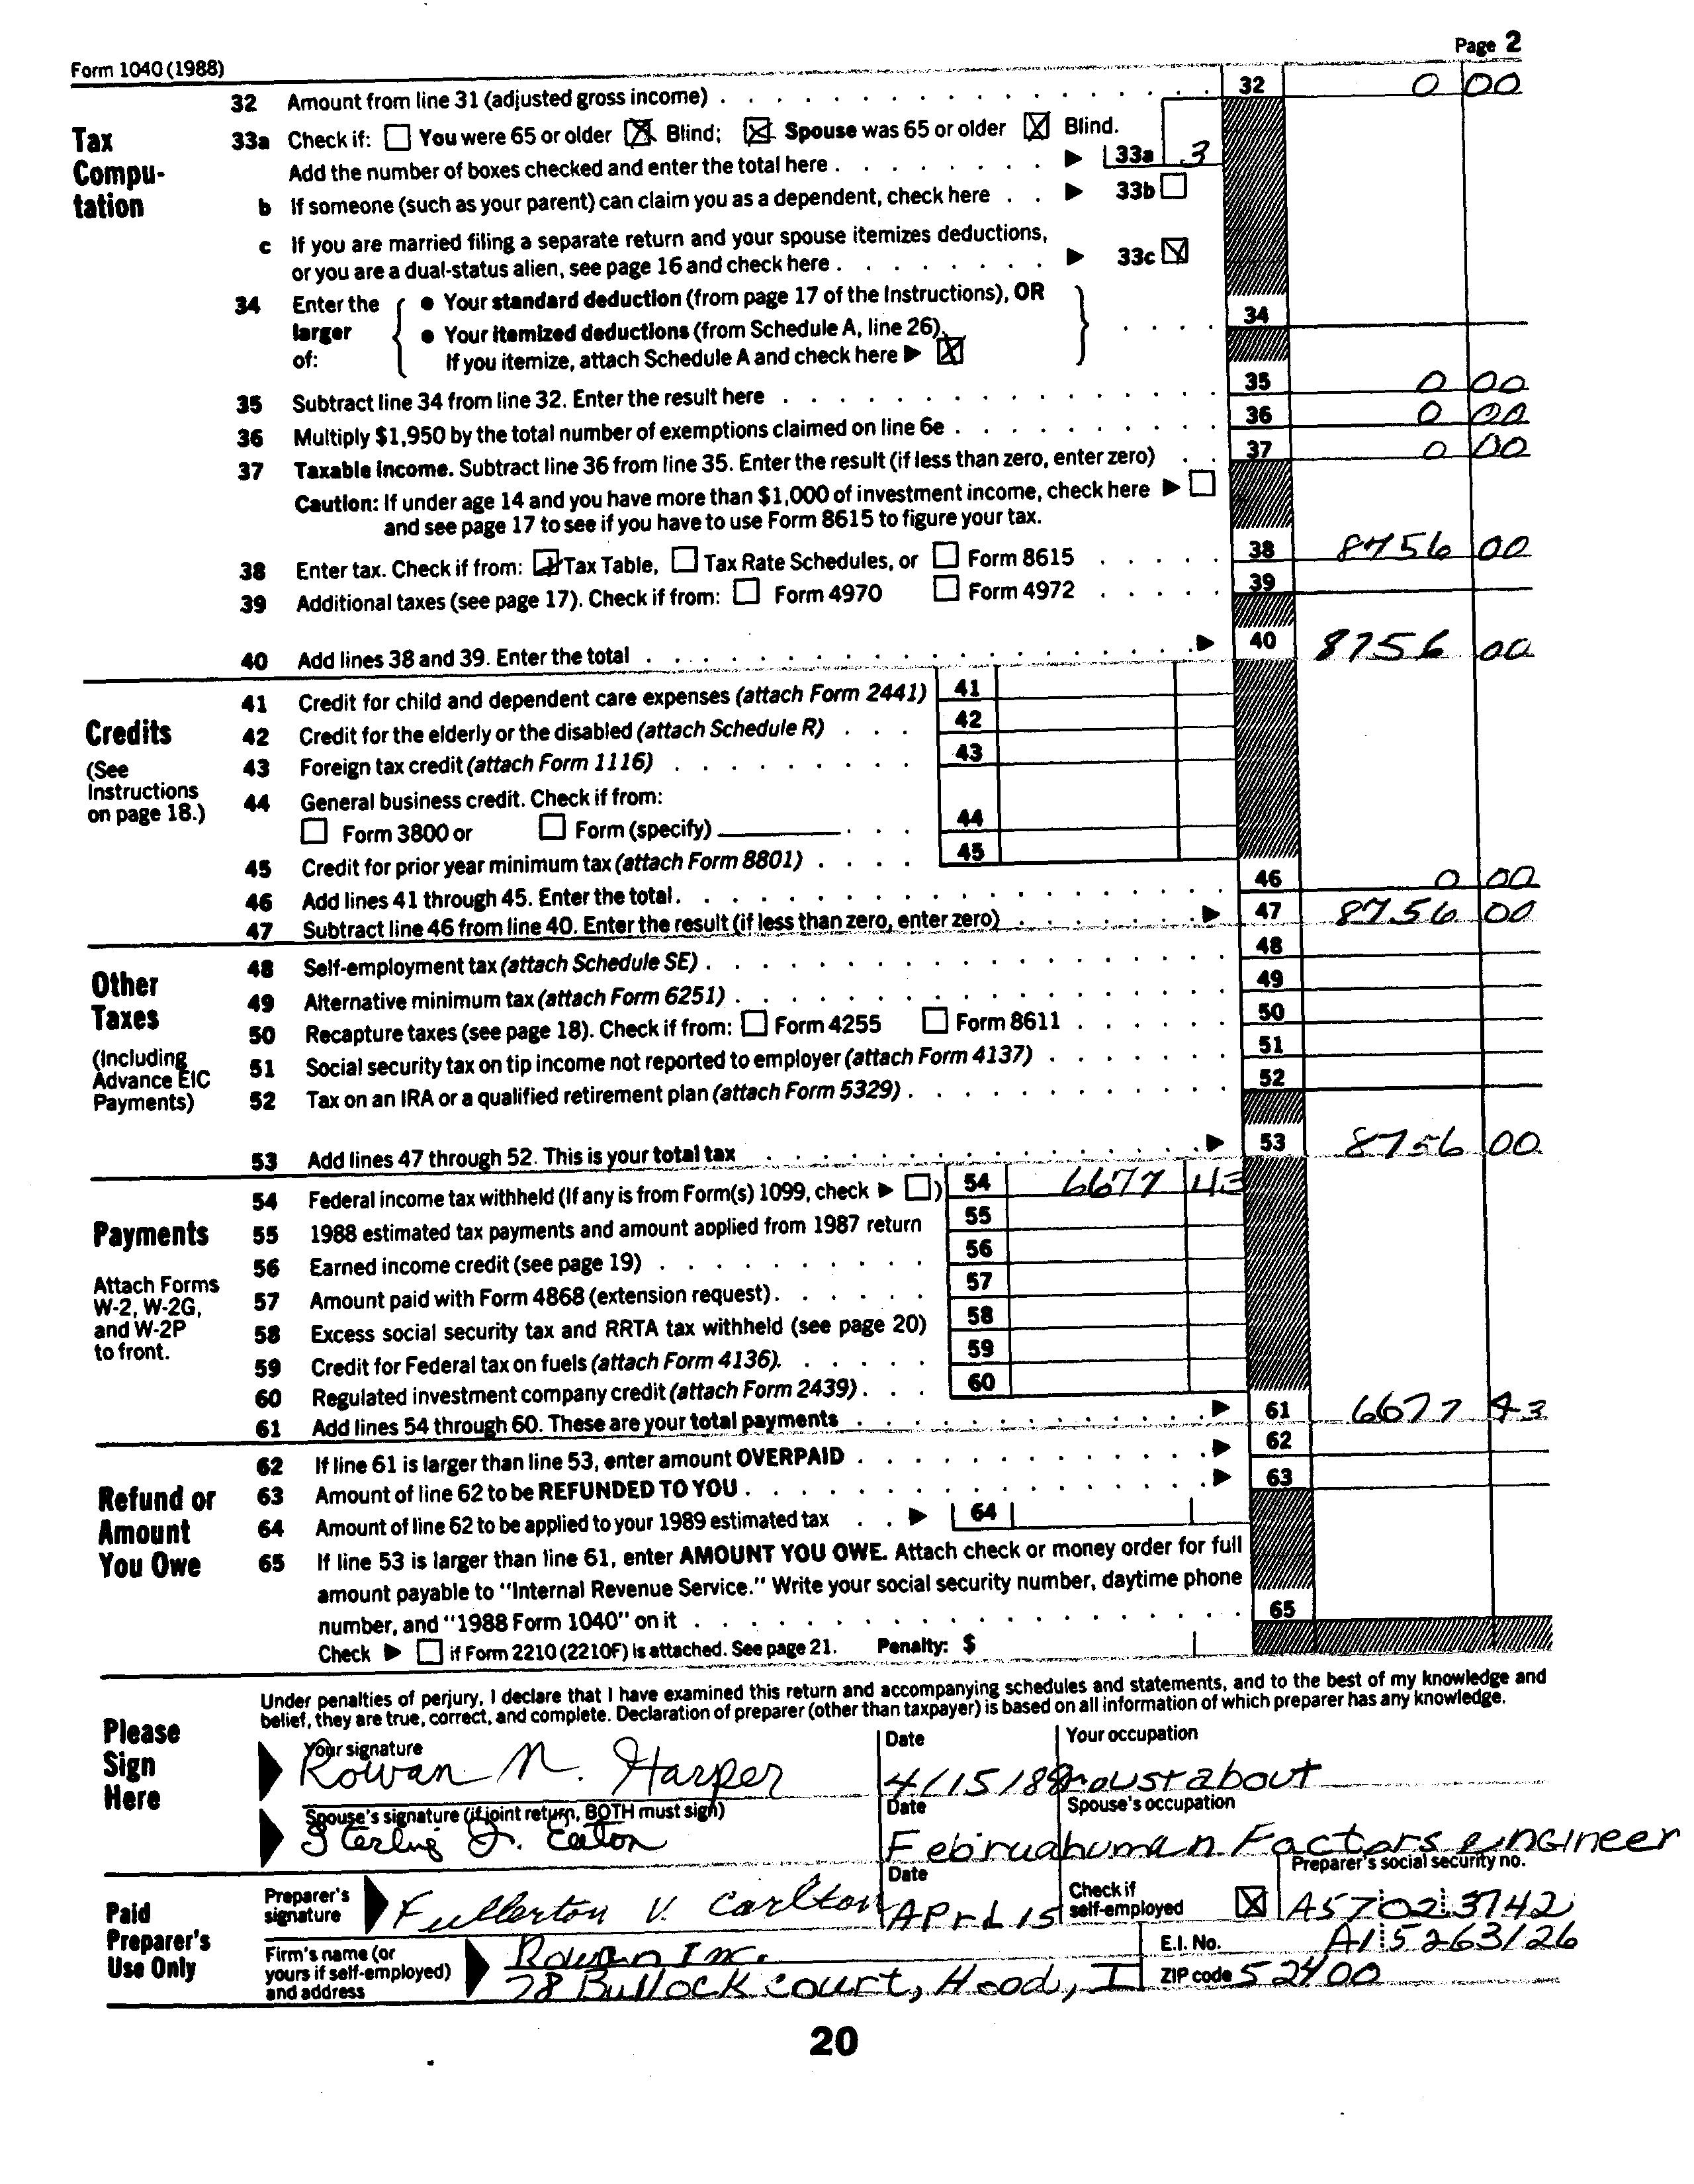 Form 1040 (1988) Page 2
Tax Compu- tation
32 Amount from line 31 (adjusted gross income) 32 0 00
33a Check if: You were 65 or older Blind; Spouse was 65 or older Blind.
Add the number of boxes checked and enter the total here 33a 3
b If someone (such as your parent) can claim you as a dependent, check here 33b
c If you are married filing a separate return and your spouse itemizes deductions,
or you are a dual-status alien, see page 16 and check here 33c
34 Enter the larger of: • Your standard deduction (from page 17 of the Instructions), OR
• Your itemized deductions (from Schedule A, line 26). 34
If you itemize, attach Schedule A and check here
35 Subtract line 34 from line 32. Enter the result here 35 0 00
36 Multiply $1,950 by the total number of exemptions claimed on line 6e 36 0 00
37 Taxable income. Subtract line 36 from line 35. Enter the result (if less than zero, enter zero) 37 0 00
Caution: If under age 14 and you have more than $1,000 of investment income, check here
and see page 17 to see if you have to use Form 8615 to figure your tax.
38 Enter tax. Check if from: Tax Table, Tax Rate Schedules, or Form 8615 38 8756 00
39 Additional taxes (see page 17). Check if from: Form 4970 Form 4972 39
40 Add lines 38 and 39. Enter the total 40 8756 00
Credits
(See Instructions on page 18.)
41 Credit for child and dependent care expenses (attach Form 2441) 41
42 Credit for the elderly or the disabled (attach Schedule R) 42
43 Foreign tax credit (attach Form 1116) 43
44 General business credit. Check if from:
Form 3800 or Form (specify) 44
45 Credit for prior year minimum tax (attach Form 8801) 45
46 Add lines 41 through 45. Enter the total 46 0 00
47 Subtract line 46 from line 40. Enter the result (if less than zero, enter zero) 47 8756 00
Other Taxes
(Including Advance EIC Payments)
48 Self-employment tax (attach Schedule SE) 48
49 Alternative minimum tax (attach Form 6251) 49
50 Recapture taxes (see page 18). Check if from: Form 4255 Form 8611 50
51 Social security tax on tip income not reported to employer (attach Form 4137) 51
52 Tax on an IRA or a qualified retirement plan (attach Form 5329) 52
53 Add lines 47 through 52. This is your total tax 53 8756 00
Payments
Attach Forms W-2, W-2G, and W-2P to front.
54 Federal income tax withheld (If any is from Form(s) 1099, check ) 54 6677 43
55 1988 estimated tax payments and amount applied from 1987 return 55
56 Earned income credit (see page 19) 56
57 Amount paid with Form 4868 (extension request) 57
58 Excess social security tax and RRTA tax withheld (see page 20) 58
59 Credit for Federal tax on fuels (attach Form 4136) 59
60 Regulated investment company credit (attach Form 2439) 60
61 Add lines 54 through 60. These are your total payments 61 6677 43
Refund or Amount You Owe
62 If line 61 is larger than line 53, enter amount OVERPAID 62
63 Amount of line 62 to be REFUNDED TO YOU 63
64 Amount of line 62 to be applied to your 1989 estimated tax 64
65 If line 53 is larger than line 61, enter AMOUNT YOU OWE. Attach check or money order for full
amount payable to "Internal Revenue Service." Write your social security number, daytime phone
number, and "1988 Form 1040" on it 65
Check if Form 2210 (2210F) is attached. See page 21. Penalty: $
Please Sign Here
Under penalties of perjury, I declare that I have examined this return and accompanying schedules and statements, and to the best of my knowledge and
belief, they are true, correct, and complete. Declaration of preparer (other than taxpayer) is based on all information of which preparer has any knowledge.
Your signature Date Your occupation
Rowan N. Harper 4/15/88 roustabout
Spouse's signature (if joint return, BOTH must sign) Date Spouse's occupation
Sterling J. Eaton Februa human Factors engineer
Paid Preparer's Use Only
Preparer's signature Date Check if self-employed Preparer's social security no.
Fullerton V. Carlton April 15 A57023742
Firm's name (or yours if self-employed) and address E.I. No. A15263126
Rowan Inc.
28 Bullock court, Hood, I ZIP code 52400
20